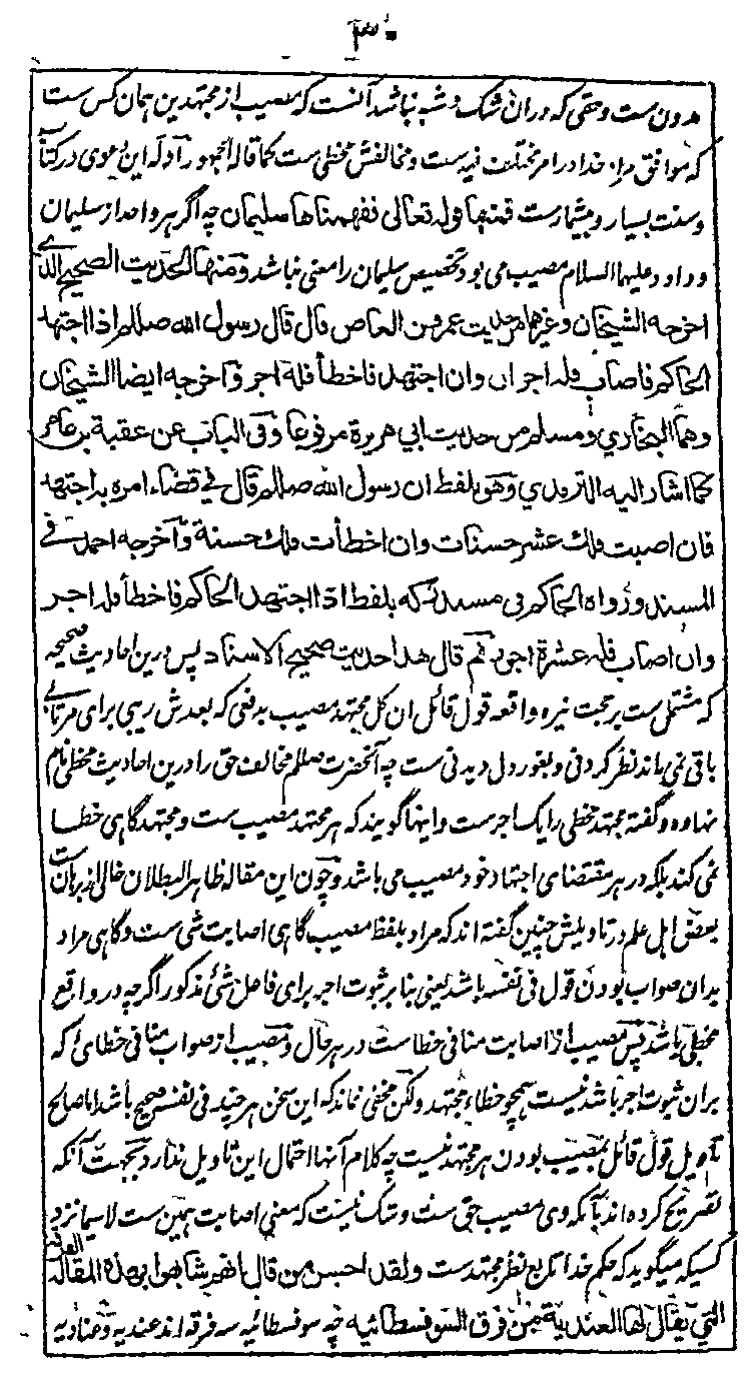 ۳۰
مدون ست وحقی که دران شک و شبه نباشد آنست که مصیب از مجتهدین همان کس ست
که موافق مراد خدا در امر مختلف فیه ست و مخالفش مخطی ست کما قاله الجمهور و ادله این دعوی در کتاب
و سنت بسیار و بیشمار ست فمنها قوله تعالی ففهمناها سلیمان چه اگر هر واحد از سلیمان
و داود علیهما السلام مصیب می بود تخصیص سلیمان را معنی نباشد ومنها الحدیث الصحیح الذی
اخرجه الشیخان وغیرهما من حدیث عمرو بن العاص قال قال رسول الله صللم اذا اجتهد
الحاکم فاصاب فله اجران وان اجتهد فاخطأ فله اجر واخرجه ایضا الشیخان
وهما البخاری ومسلم من حدیث ابی هریرة مرفوعا وفی الباب عن عقبة بن عامر
کما اشار الیه الترمذی وهو بلفظ ان رسول الله صللم قال فی قضاء امره به اجتهد
فان اصبت فلک عشر حسنات وان اخطأت فلک حسنة واخرجه احمد فی
المسند ورواه الحاکم فی مستدرکه بلفظ اذا اجتهد الحاکم فاخطأ فله اجر
وان اصاب فله عشرة اجور ثم قال هذا حدیث صحیح الاسناد پس درین احادیث صحیحه
که مشتمل ست بر حجت نیره واقعه قول قائل ان کل مجتهد مصیب بدفعی که بعدش ریبی برای مرتابی
باقی نمی ماند نظر کردنی و بغور دل دیدنی ست چه آنحضرت صللم مخالف حق را درین احادیث مخطی نام
نهاده و گفته مجتهد مخطی را یک اجر ست و اینها گویند که هر مجتهد مصیب ست و مجتهد گاهی خطا
نمی کند بلکه در هر مقتضای اجتهاد خود مصیب می باشد وچون این مقاله ظاهر البطلان خالی از برهان ست
بعض اهل علم در تاویلش چنین گفته اند که مراد بلفظ مصیب گاهی اصابت شی ست و گاهی مراد
بدان صواب بودن قول فی نفسه باشد یعنی بنابر ثبوت اجر برای فاعل شئ مذکور اگرچه در واقع
مخطی باشد پس مصیب از اصابت منافی خطاست در هر حال و مصیب از صواب منافی خطائ که
بران ثبوت اجر باشد نیست همچو خطاء مجتهد ولکن مخفی نماند که این سخن هر چند فی نفسه صحیح باشد اما صالح
تاویل قول قائل بمصیب بودن هر مجتهد نیست چه کلام آنها احتمال این تاویل ندارد بجهت آنکه
تصریح کرده اند بآنکه وی مصیب حق ست و شک نیست که معنی اصابت همین ست لاسیما نزد
کسیکه میگوید که حکم خدا تابع نظر مجتهد ست ولقد احسن من قال انهم شابهوا بهذه المقالة الفرقة
التی یقال لها العندیة من فرق السوفسطائیه چه سوفسطائیه سه فرقه اند عندیه وعنادیه